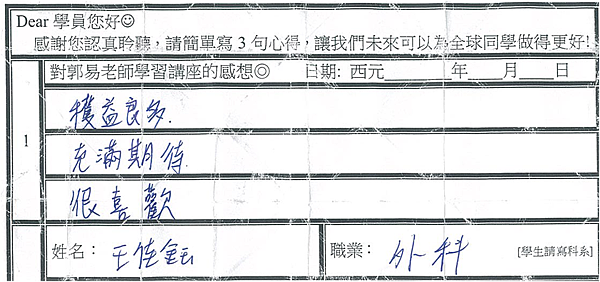 Dear 學員您好☺
感謝您認真聆聽，請簡單寫 3 句心得，讓我們未來可以為全球同學做得更好!
對郭易老師學習講座的感想◎ 日期: 西元______年____月____日
1
獲益良多.
充滿期待
很喜歡
姓名： 王佳鈺 職業： 外科 [學生請寫科系]